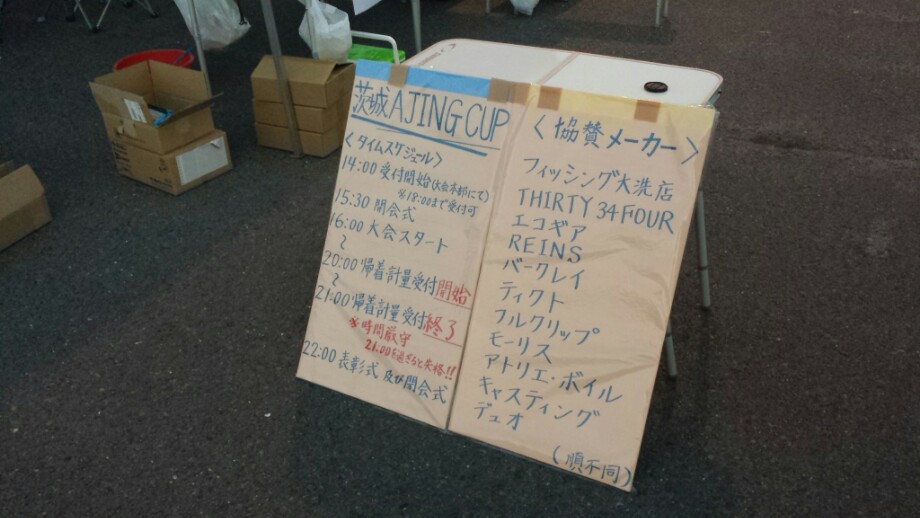 茨城AJING CUP
〈タイムスケジュール〉
14:00 受付開始(大会本部にて)
※18:00まで受付可
15:30 開会式
16:00 大会スタート
〜
20:00 帰着・計量受付開始
〜
21:00 帰着計量受付終了
※時間厳守
21:00を過ぎると失格!!
22:00 表彰式 及び閉会式
〈協賛メーカー〉
フィッシング大洗店
THIRTY 34 FOUR
エコギア
REINS
バークレイ
ティクト
フルクリップ
モーリス
アトリエ・ボイル
キャスティング
デュオ
(順不同)